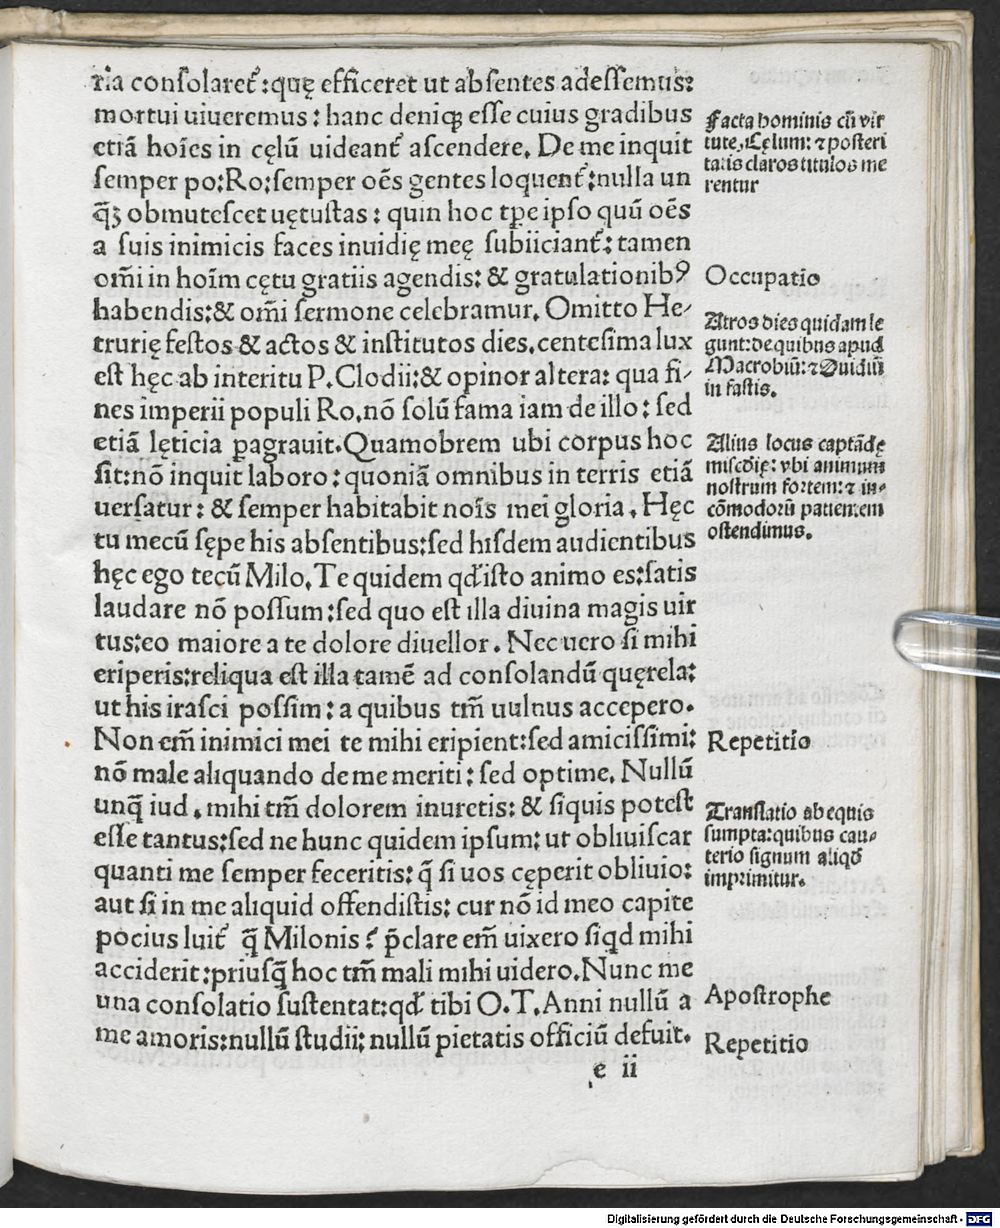 ria conſolareť: quę efficeret ut abſentes adeſſemus:
mortui uiueremus: hanc deniqꝫ eſſe cuius gradibus
etiā hoīes in cęlū uideanť aſcendere. De me inquit
ſemper po: Ro: ſemper oēs gentes loquenť: nulla un
q̄ꝫ obmuteſcet uętuſtas: quin hoc tꝑe ipſo quū oēs
a ſuis inimicis faces inuidię meę ſubiicianť: tamen
om̄i in hoīm cętu gratiis agendis: & gratulationibꝰ
habendis: & om̄i ſermone celebramur. Omitto He-
trurię feſtos & actos & inſtitutos dies. centeſima lux
eſt hęc ab interitu P. Clodii: & opinor altera: qua fi-
nes imperii populi Ro. nō ſolū fama iam de illo: ſed
etiā lęticia ꝑagrauit. Quamobrem ubi corpus hoc
ſit: nō inquit laboro: quoniā omnibus in terris etiā
uerſatur: & ſemper habitabit noīs mei gloria. Hęc
tu mecū ſępe his abſentibus: ſed hiſdem audientibus
hęc ego tecū Milo. Te quidem qđ iſto animo es: ſatis
laudare nō poſſum: ſed quo eſt illa diuina magis uir
tus: eo maiore a te dolore diuellor. Nec uero ſi mihi
eriperis: reliqua eſt illa tamē ad conſolandū quęrela:
ut his iraſci poſſim: a quibus tm̄ uulnus accepero.
Non em̄ inimici mei te mihi eripient: ſed amiciſſimi:
nō male aliquando de me meriti: ſed optime. Nullū
unq̄ iud. mihi tm̄ dolorem inuretis: & ſiquis poteſt
eſſe tantus: ſed ne hunc quidem ipſum: ut obliuiſcar
quanti me ſemper feceritis: q̄ ſi uos cęperit obliuio:
aut ſi in me aliquid offendiſtis: cur nō id meo capite
pocius luiť q̄ Milonis? p̄clare em̄ uixero ſiqd mihi
acciderit: priuſq̄ hoc tm̄ mali mihi uidero. Nunc me
una conſolatio ſuſtentat: qđ tibi O. T. Anni nullū a
me amoris: nullū ſtudii: nullū pietatis officiū defuit.
e ii
Facta hominis cū vir
tute. Cęlum: ⁊ poſteri
tatis claros titulos me
rentur
Occupatio
Atros dies quidam le
gunt: de quibus apud
Macrobiū: ⁊ Ouidiū
in faſtis.
Alius locus captādę
miſcdię: vbi animum
noſtrum fortem: ⁊ in-
cōmodorū patientem
oſtendimus.
Repetitio
Tranſlatio ab equis
ſumpta: quibus cau-
terio ſignum aliqđ
imprimitur.
Apoſtrophe
Repetitio
Digitalisierung gefördert durch die Deutsche Forschungsgemeinschaft - DFG